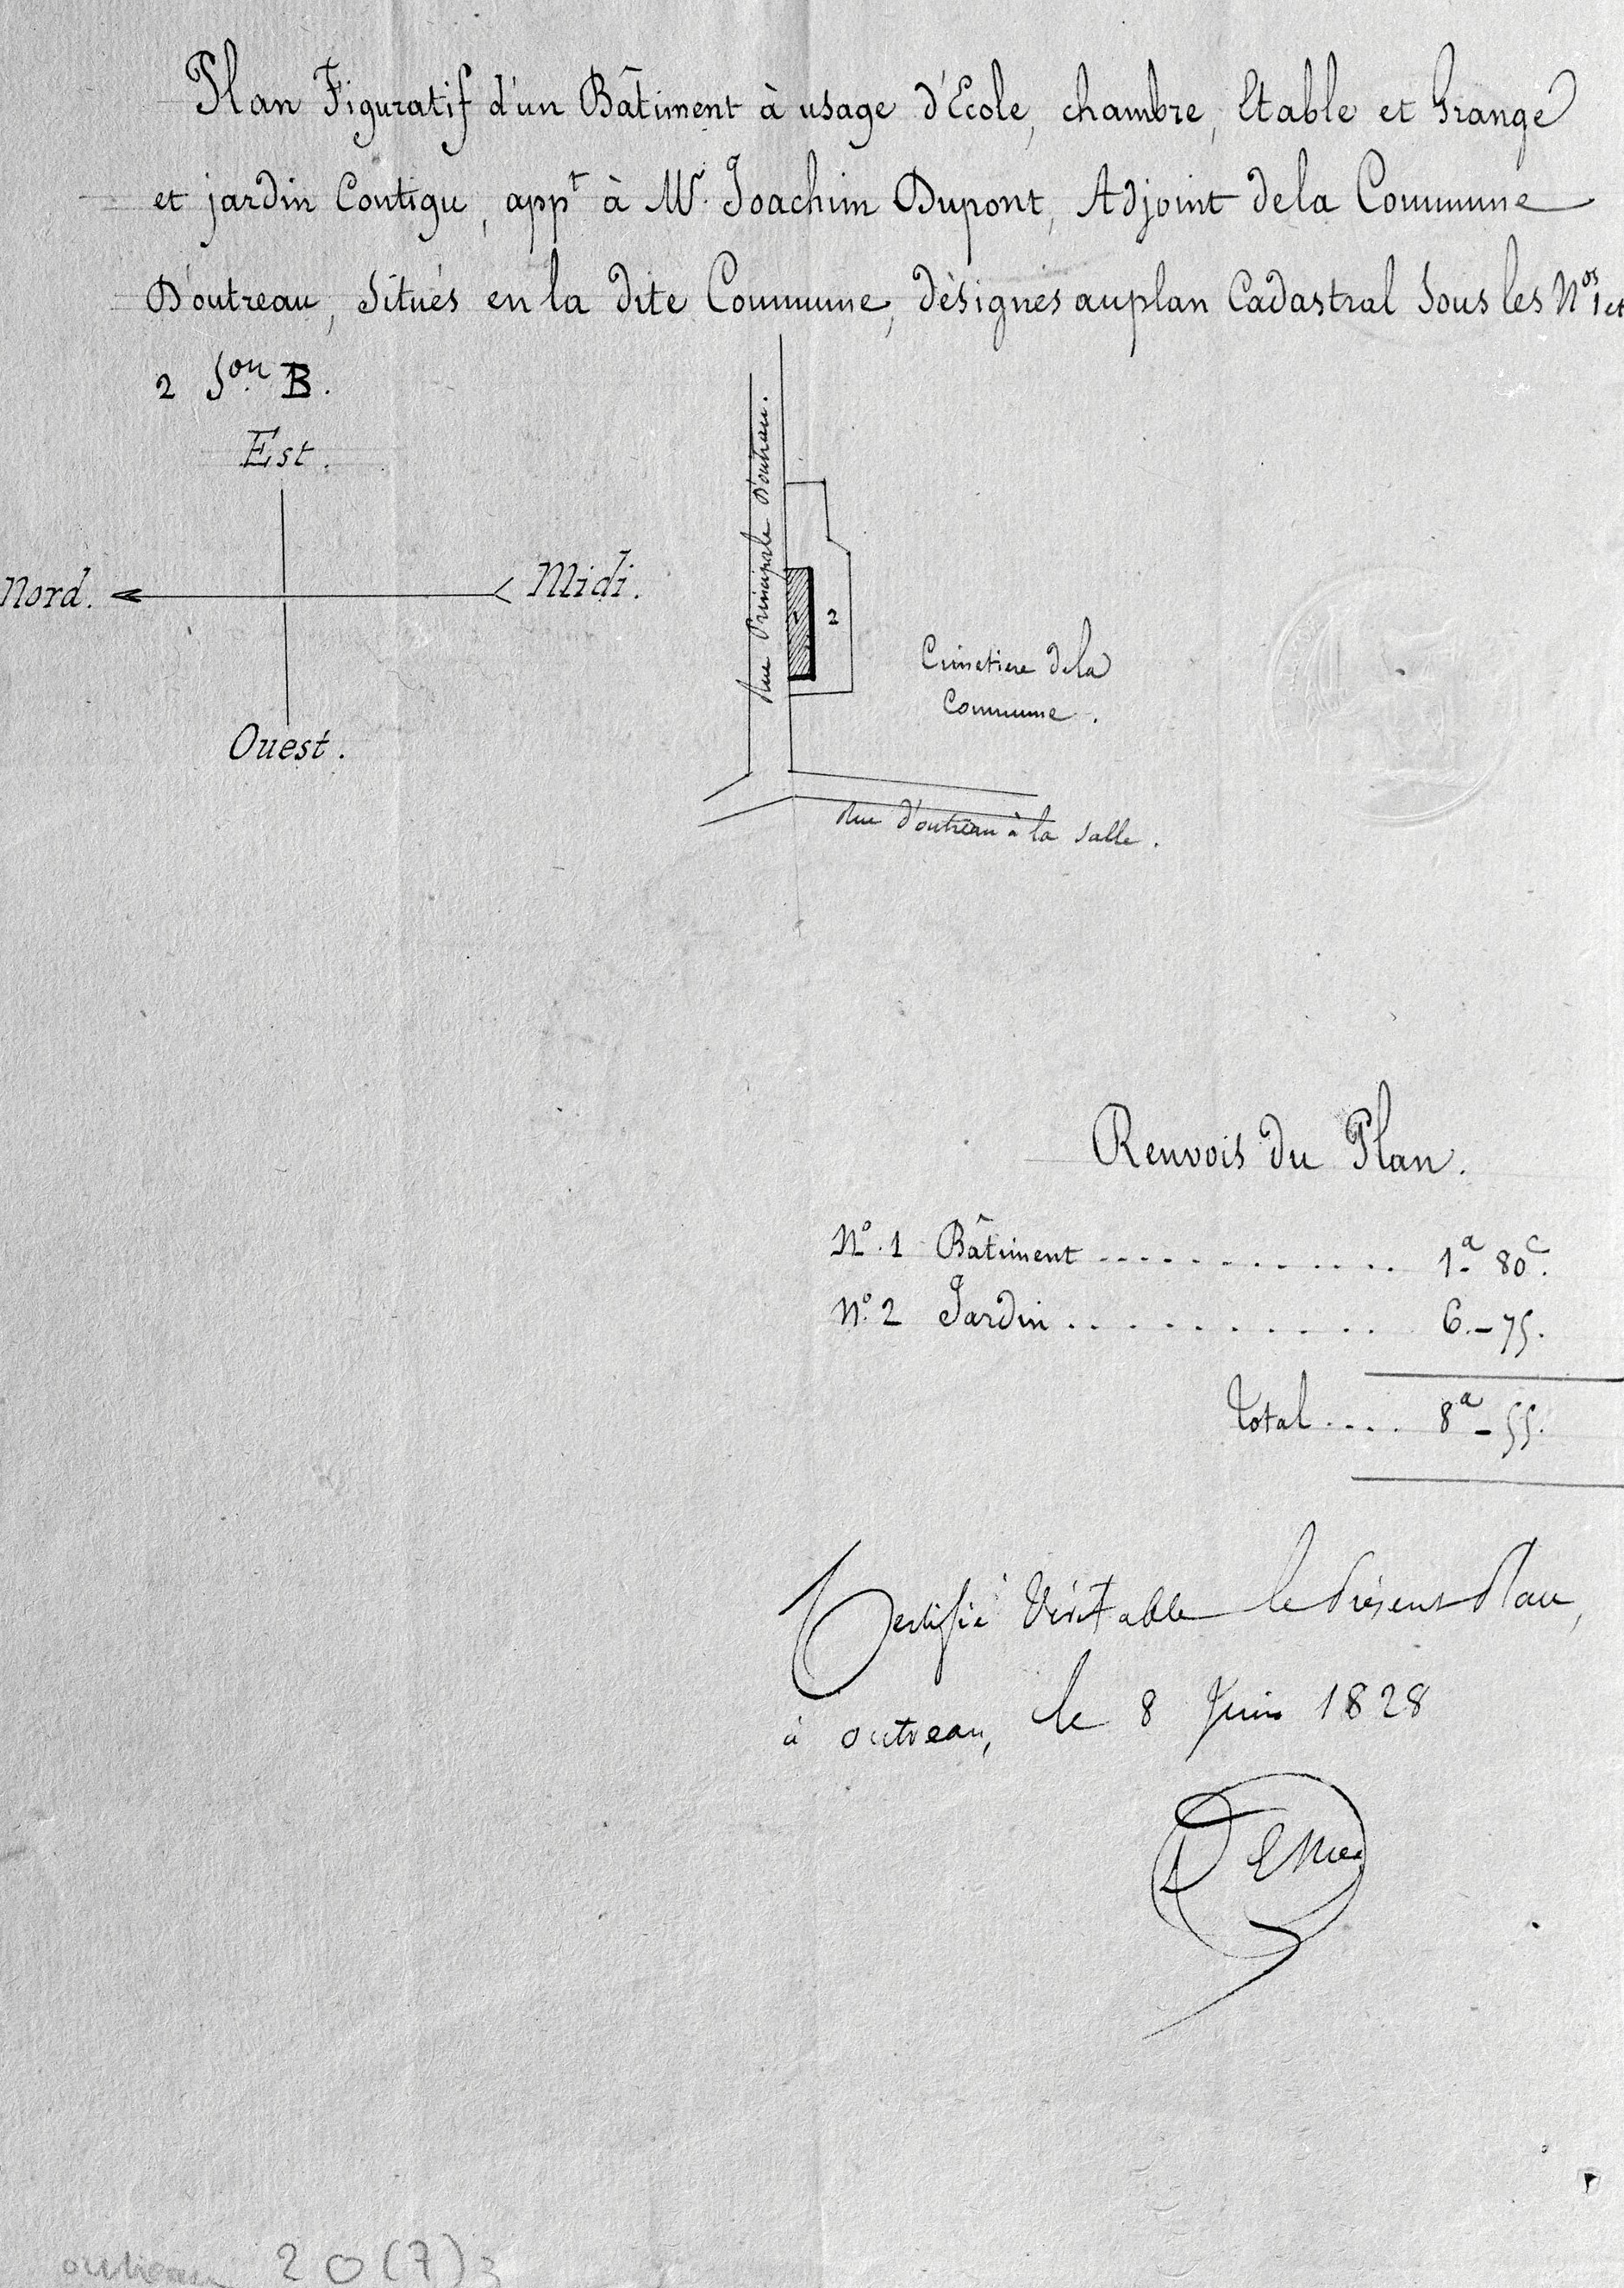 Plan Figuratif d'un Bâtiment à usage d'Ecole, chambre, Etable et Grange
et jardin Contigu, appt à Mr. Joachim Dupont, Adjoint dela Commune
D'outreau, Situés en la dite Commune, désignés au plan Cadastral Sous les Nos 1 et
2 Son B.
Est.
Nord.
Midi.
Ouest.
Rue Principale D'outreau.
1
2
Cimetiere dela
Commune.
Rue d'outreau à la Salle.
Renvois du Plan.
No. 1 Bâtiment ............ 1a. 80c.
No. 2 Jardin ........... 6. – 75.
Total .... 8a – 55.
Certifié Véritable le Présent Plan,
à outreau, le 8 Juin 1828
outreau 20(7)3